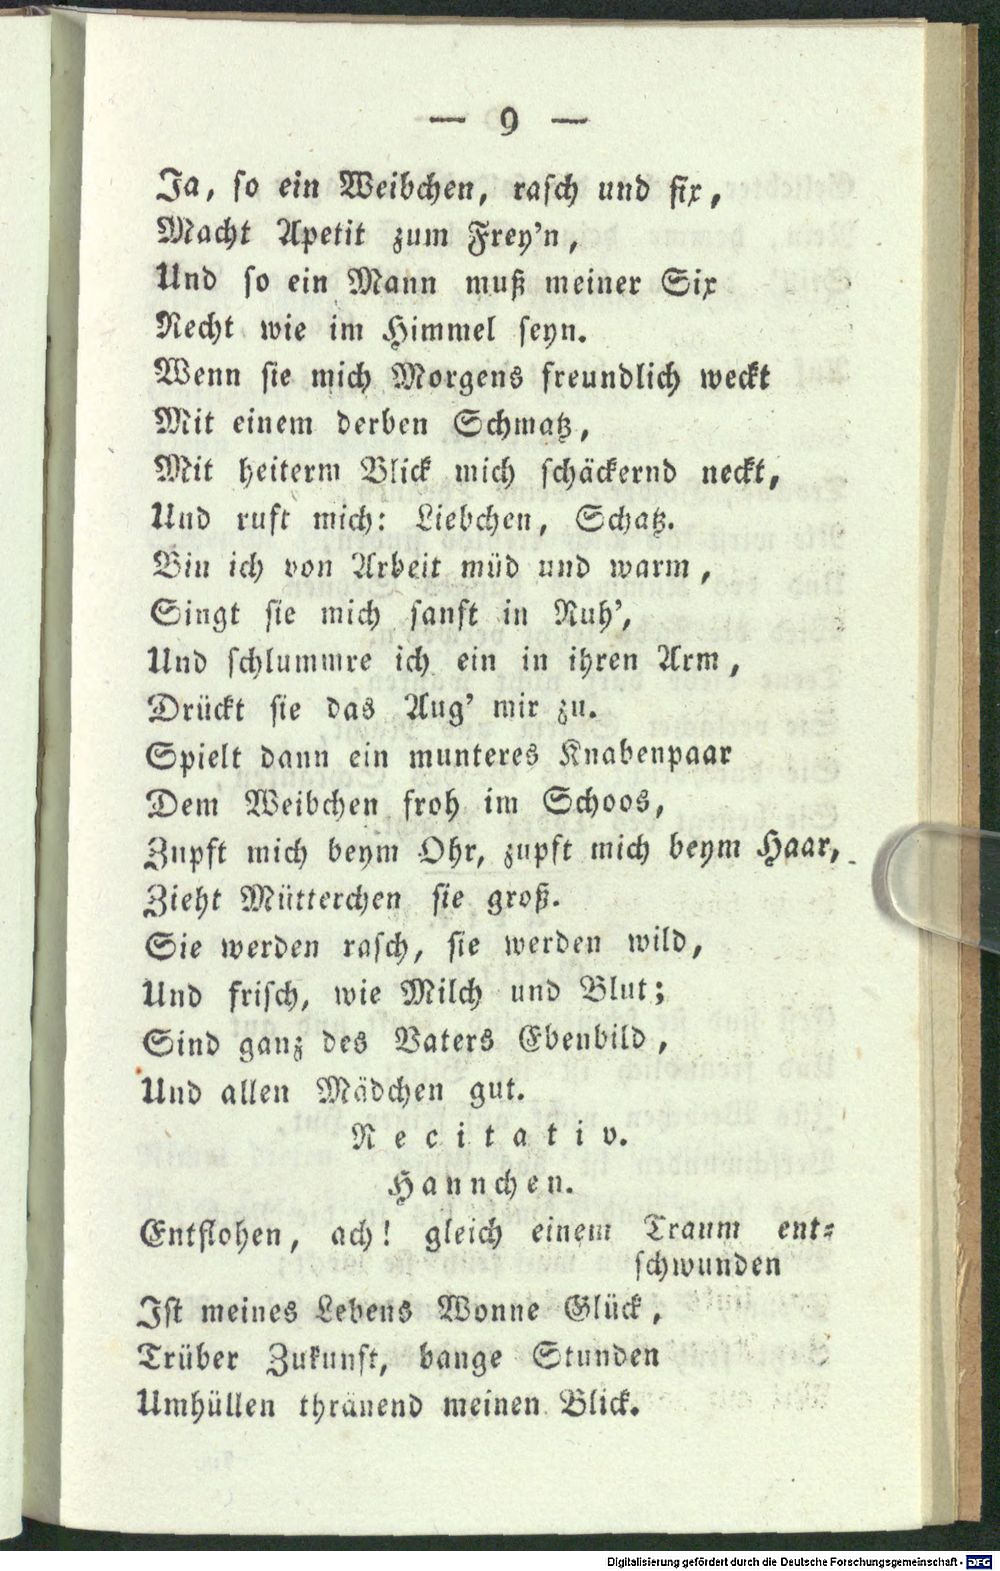 — 9 —
Ja, so ein Weibchen, rasch und fix,
Macht Apetit zum Frey'n,
Und so ein Mann muß meiner Six
Recht wie im Himmel seyn.
Wenn sie mich Morgens freundlich weckt
Mit einem derben Schmatz,
Mit heiterm Blick mich schäckernd neckt,
Und ruft mich: Liebchen, Schatz.
Bin ich von Arbeit müd und warm,
Singt sie mich sanft in Ruh',
Und schlummre ich ein in ihren Arm,
Drückt sie das Aug' mir zu.
Spielt dann ein munteres Knabenpaar
Dem Weibchen froh im Schoos,
Zupft mich beym Ohr, zupft mich beym Haar,
Zieht Mütterchen sie groß.
Sie werden rasch, sie werden wild,
Und frisch, wie Milch und Blut;
Sind ganz des Vaters Ebenbild,
Und allen Mädchen gut.
Recitativ.
Hannchen.
Entflohen, ach! gleich einem Traum ent-
schwunden
Ist meines Lebens Wonne Glück,
Trüber Zukunft, bange Stunden
Umhüllen thränend meinen Blick.
Digitalisierung gefördert durch die Deutsche Forschungsgemeinschaft - DFG